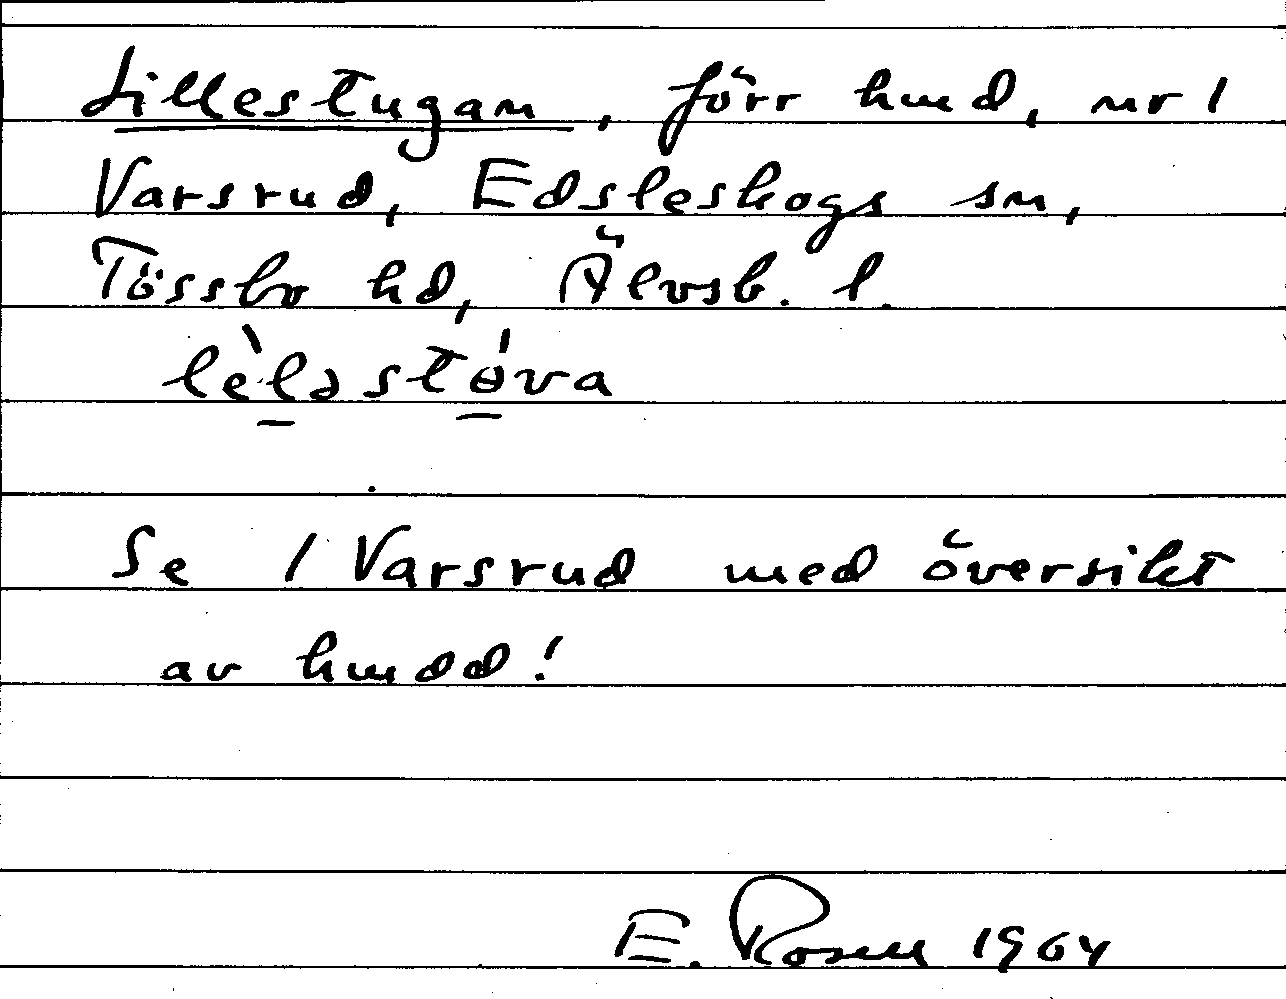 Lillestugan, förr hmd, nr 1
Varsrud, Edsleskogs sn,
Tössbo hd, Älvsb. l.
lèləstɵ́va
Se 1 Varsrud med översikt
av hmdd!
E. Rosell 1964